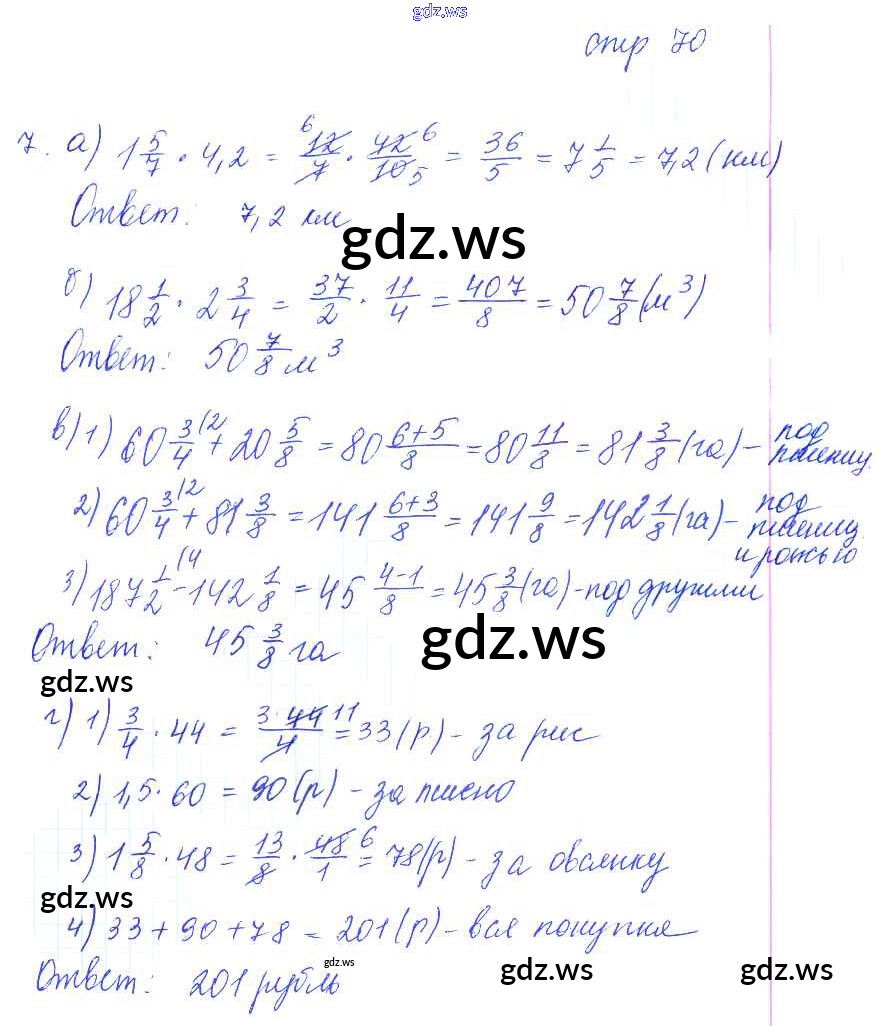 gdz.ws
стр 70
7. а) 1 5/7 · 4,2 = 12/7 · 42/10 = 36/5 = 7 1/5 = 7,2 (км)
Ответ: 7,2 км
gdz.ws
б) 18 1/2 · 2 3/4 = 37/2 · 11/4 = 407/8 = 50 7/8 (м³)
Ответ: 50 7/8 м³
в) 1) 60 3/4 (2 + 20 5/8 = 80 6+5/8 = 80 11/8 = 81 3/8 (га) – под пшениц.
2) 60 3/4 (2 + 81 3/8 = 141 6+3/8 = 141 9/8 = 142 1/8 (га) – под пшениц. и рожью
3) 187 1/2 (4 - 142 1/8 = 45 4-1/8 = 45 3/8 (га) - под другими
Ответ: 45 3/8 га
gdz.ws
gdz.ws
г) 1) 3/4 · 44 = 3·44 11/4 = 33 (р) - за рис
2) 1,5 · 60 = 90 (р) - за пшено
3) 1 5/8 · 48 = 13/8 · 48 6/1 = 78 (р) - за овсянку
gdz.ws
4) 33 + 90 + 78 = 201 (р) - вся покупка
Ответ: 201 рубль
gdz.ws
gdz.ws
gdz.ws